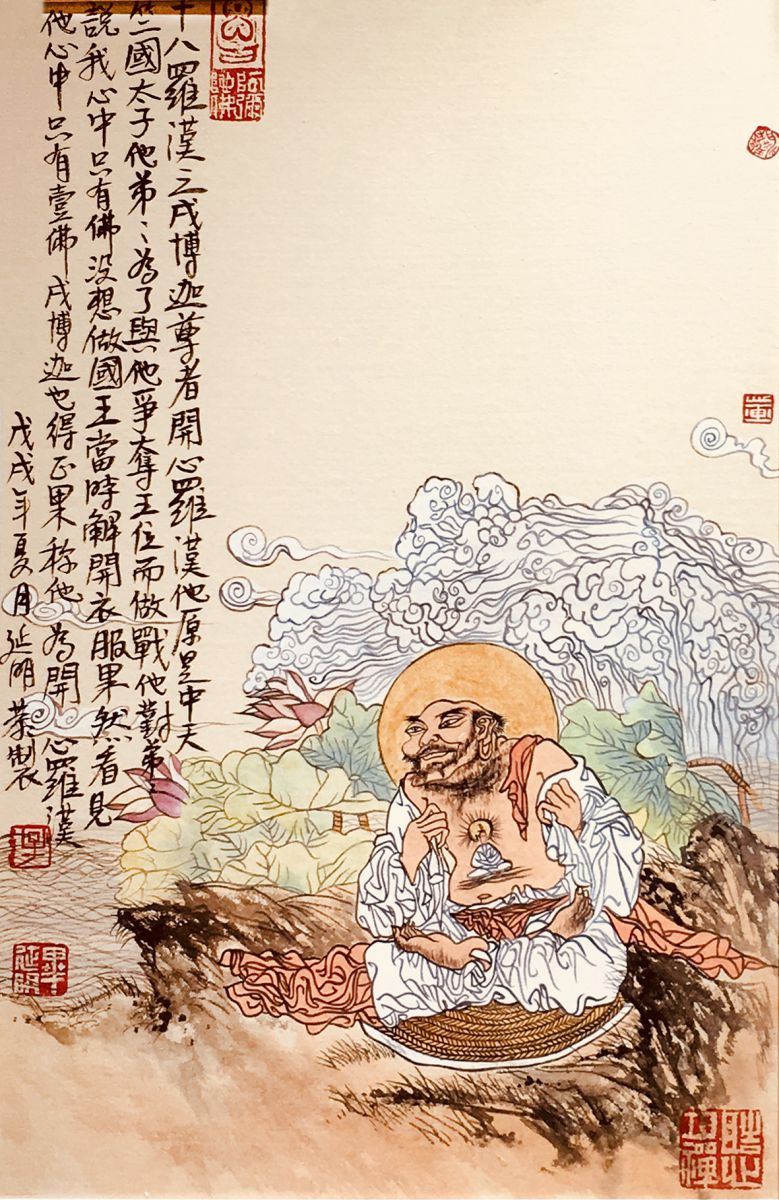 十八羅漢之戌博迦尊者開心羅漢他原是中天
竺國太子他弟〻為了與他爭奪王位而做戰他對弟〻
說我心中只有佛没想做國王當時解開衣服果然看見
他心中只有壹佛戌博迦也得正果称他為開心羅漢
戊戌年夏月延明恭製
阿彌陀佛